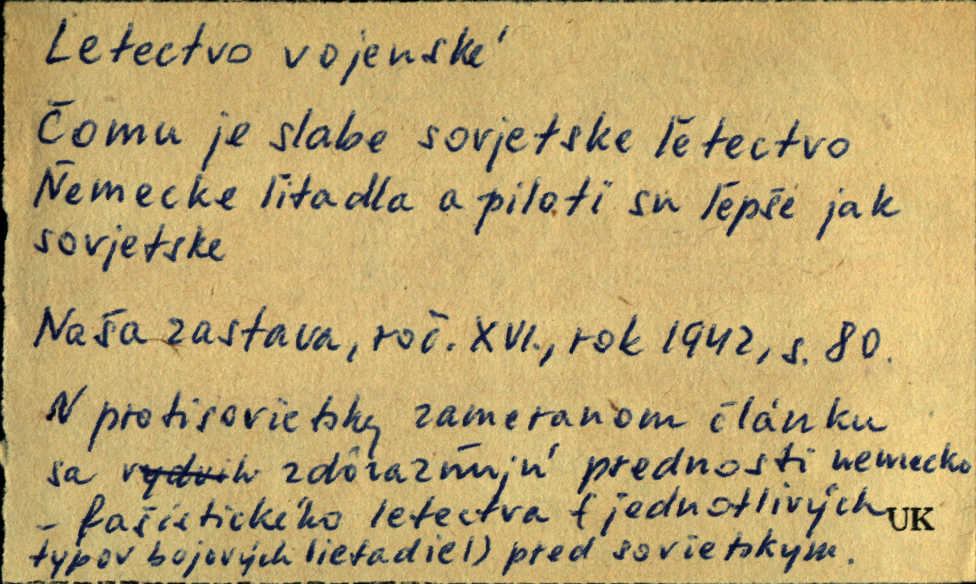 Letectvo vojenské
Čomu je slabe sovjetske ľetectvo
Ňemecke ľitadla a piloti su ľepše jak
sovjetske
Naša zastava, roč. XVI., rok 1942, s. 80.
V protisovietsky zameranom článku
sa zdôrazňujú prednosti nemecko
- fašistického letectva (jednotlivých
typov bojových lietadiel) pred sovietskym.
UK